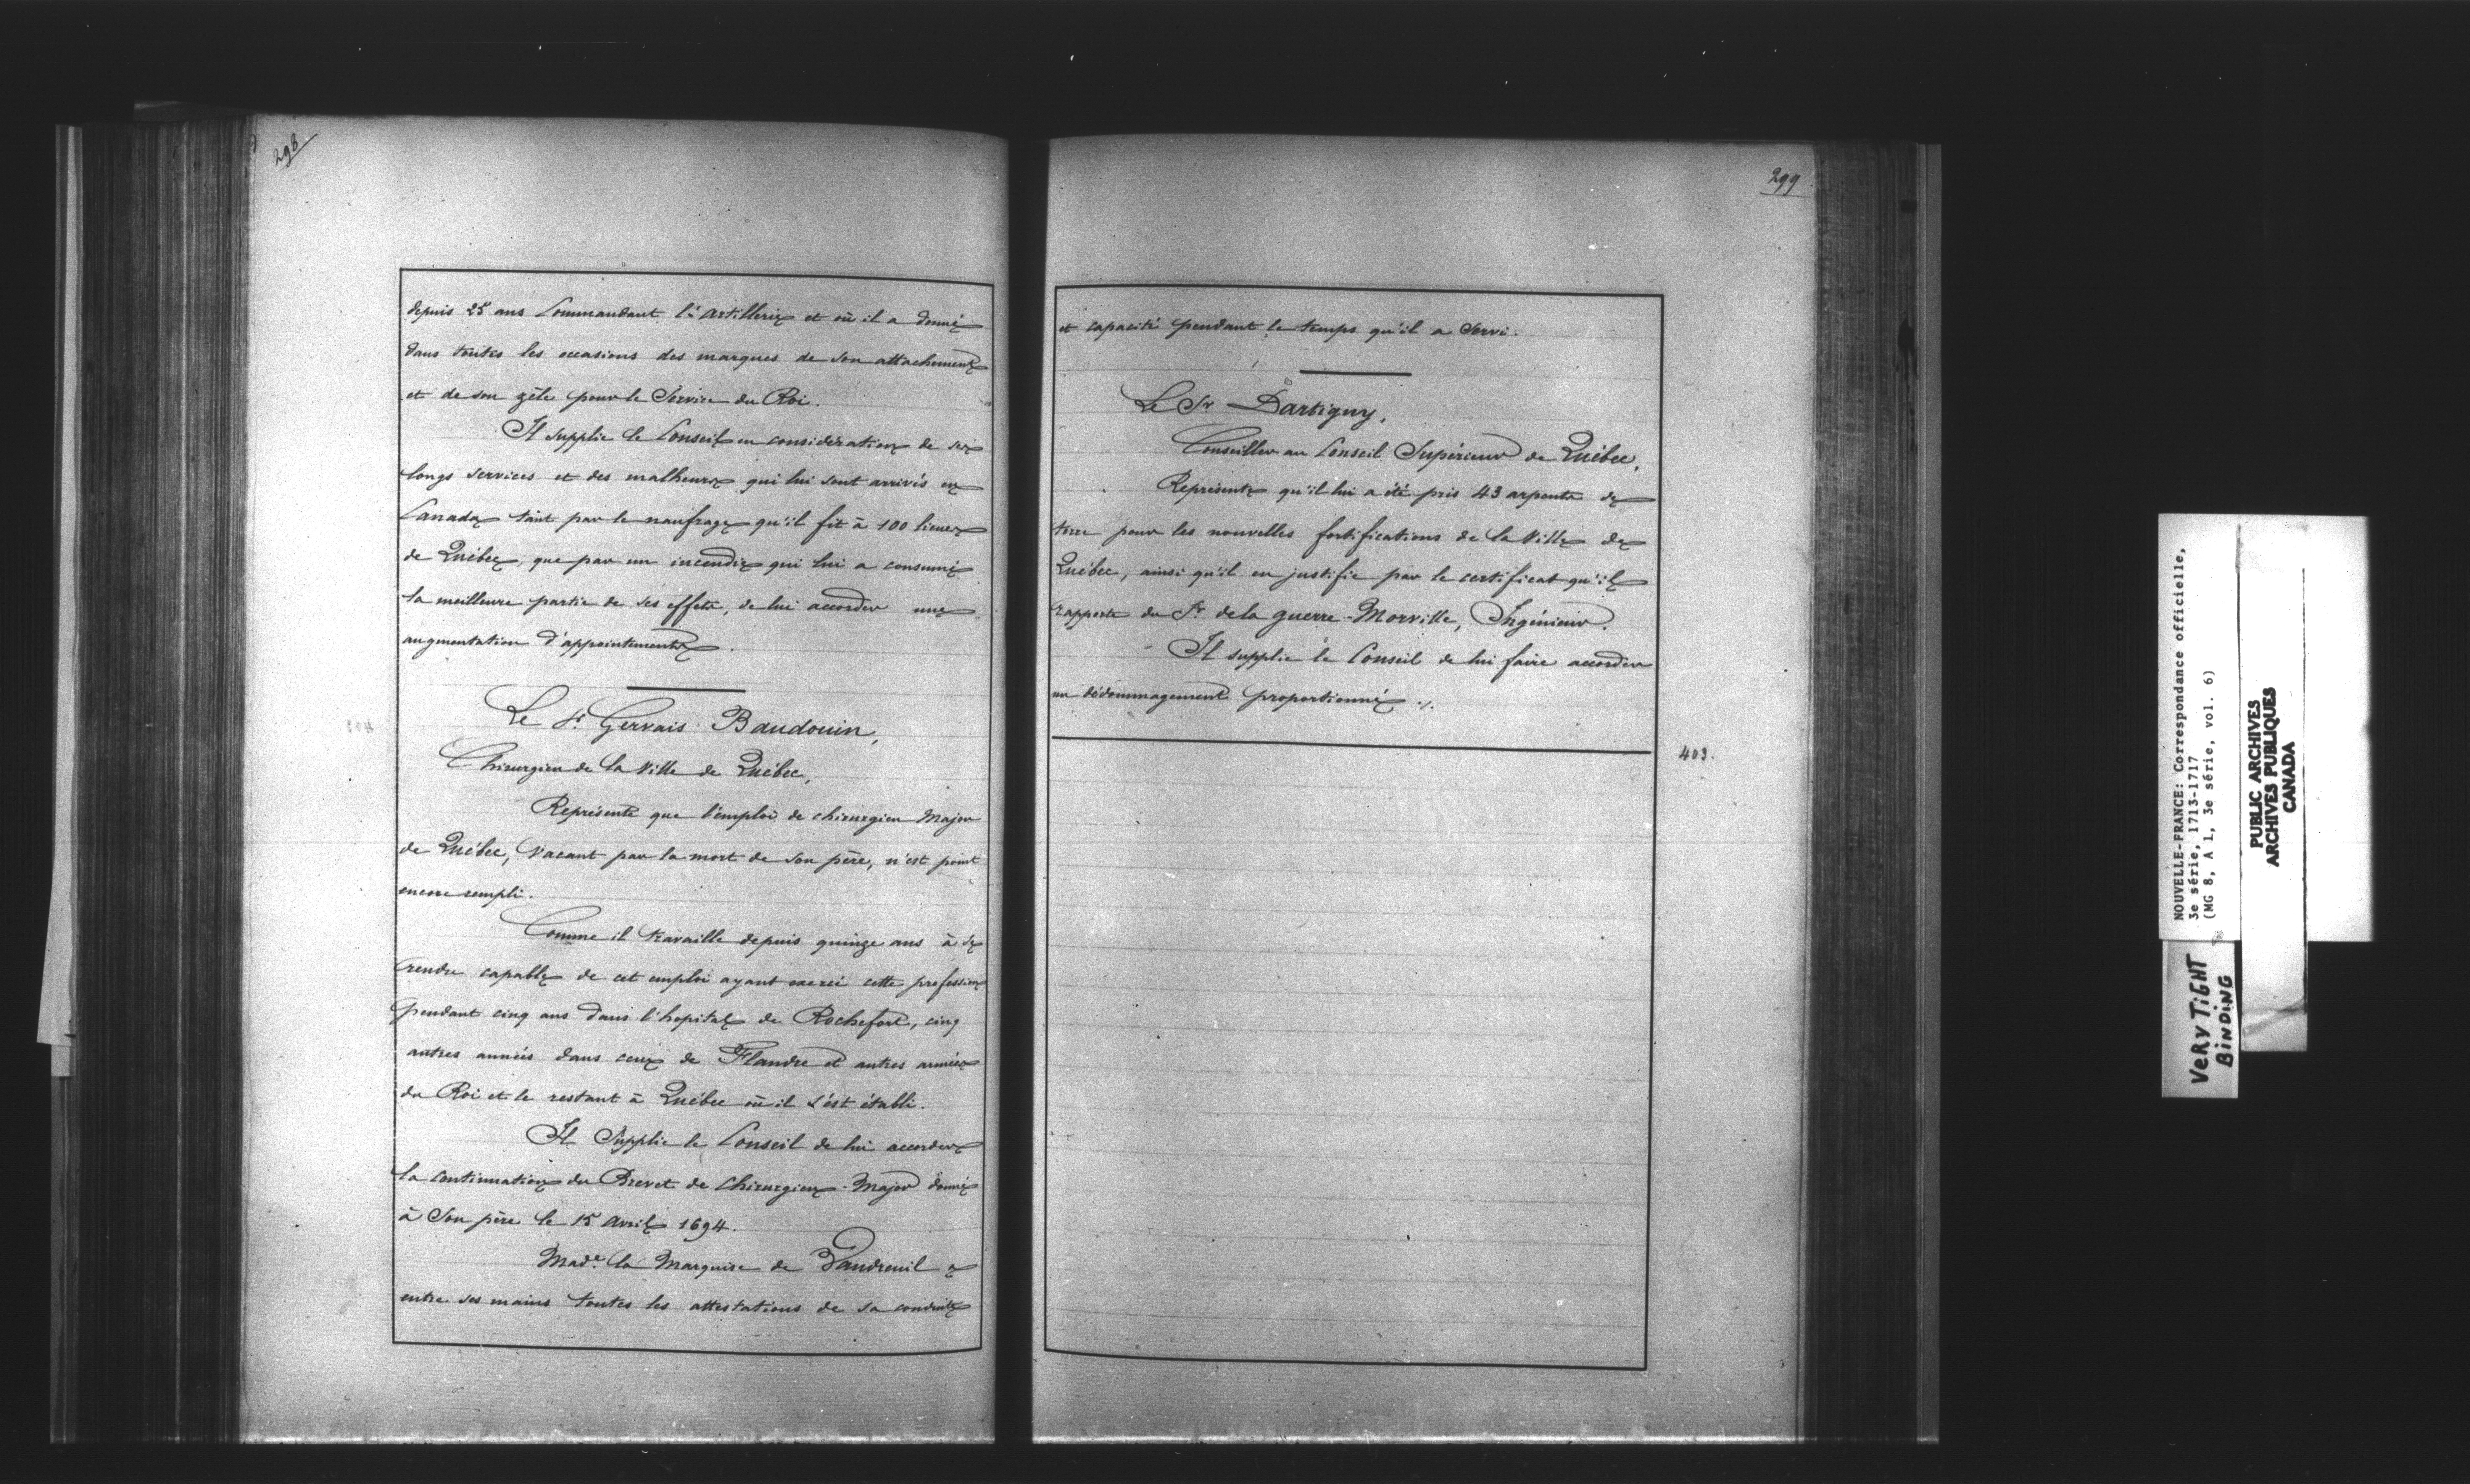 298
depuis 25 ans Commandant l'artillerie et où il a donné
dans toutes les occasions des marques de son attachement
et de son zèle pour le Service du Roi.
Il supplie le Conseil en considération de ses
longs services et des malheurs qui lui sont arrivés en
Canada tant par le naufrage qu'il fit à 100 lieues
de Québec, que par un incendie qui lui a consumé
la meilleure partie de ses effets, de lui accorder une
augmentation d'appointements.
Le Sr Gervais Baudouin,
Chirurgien de la Ville de Québec,
Représente que l'emploi de chirurgien Major
de Québec, Vacant par la mort de son père, n'est point
encore rempli.
Comme il travaille depuis quinze ans à se
rendre capable de cet emploi ayant exercé cette profession
pendant cinq ans dans l'hopital de Rochefort, cinq
autres années dans ceux de Flandre et autres armées
du Roi et le restant à Québec où il s'est établi.
Il Supplie le Conseil de lui accorder
la continuation du Brevet de Chirurgien-Major donné
à Son père le 15 Avril 1694.
Made la Marquise de Vaudreuil a
entre ses mains toutes les attestations de sa conduite
299
et capacité pendant le temps qu'il a Servi.
Le Sr Dartigny,
Conseiller au Conseil Supérieur de Québec,
Représente qu'il lui a été pris 43 arpents de
terre pour les nouvelles fortifications de la Ville de
Québec, ainsi qu'il en justifie par le certificat qu'il
rapporte du Sr de la guerre-Morville, Ingénieur.
Il supplie le Conseil de lui faire accorder
un dédommagement proportionné ./.
403.
NOUVELLE-FRANCE: Correspondance officielle,
3e série, 1713-1717
(MG 8, A 1, 3e série, vol. 6)
PUBLIC ARCHIVES
ARCHIVES PUBLIQUES
CANADA
VERY TIGHT
BINDING